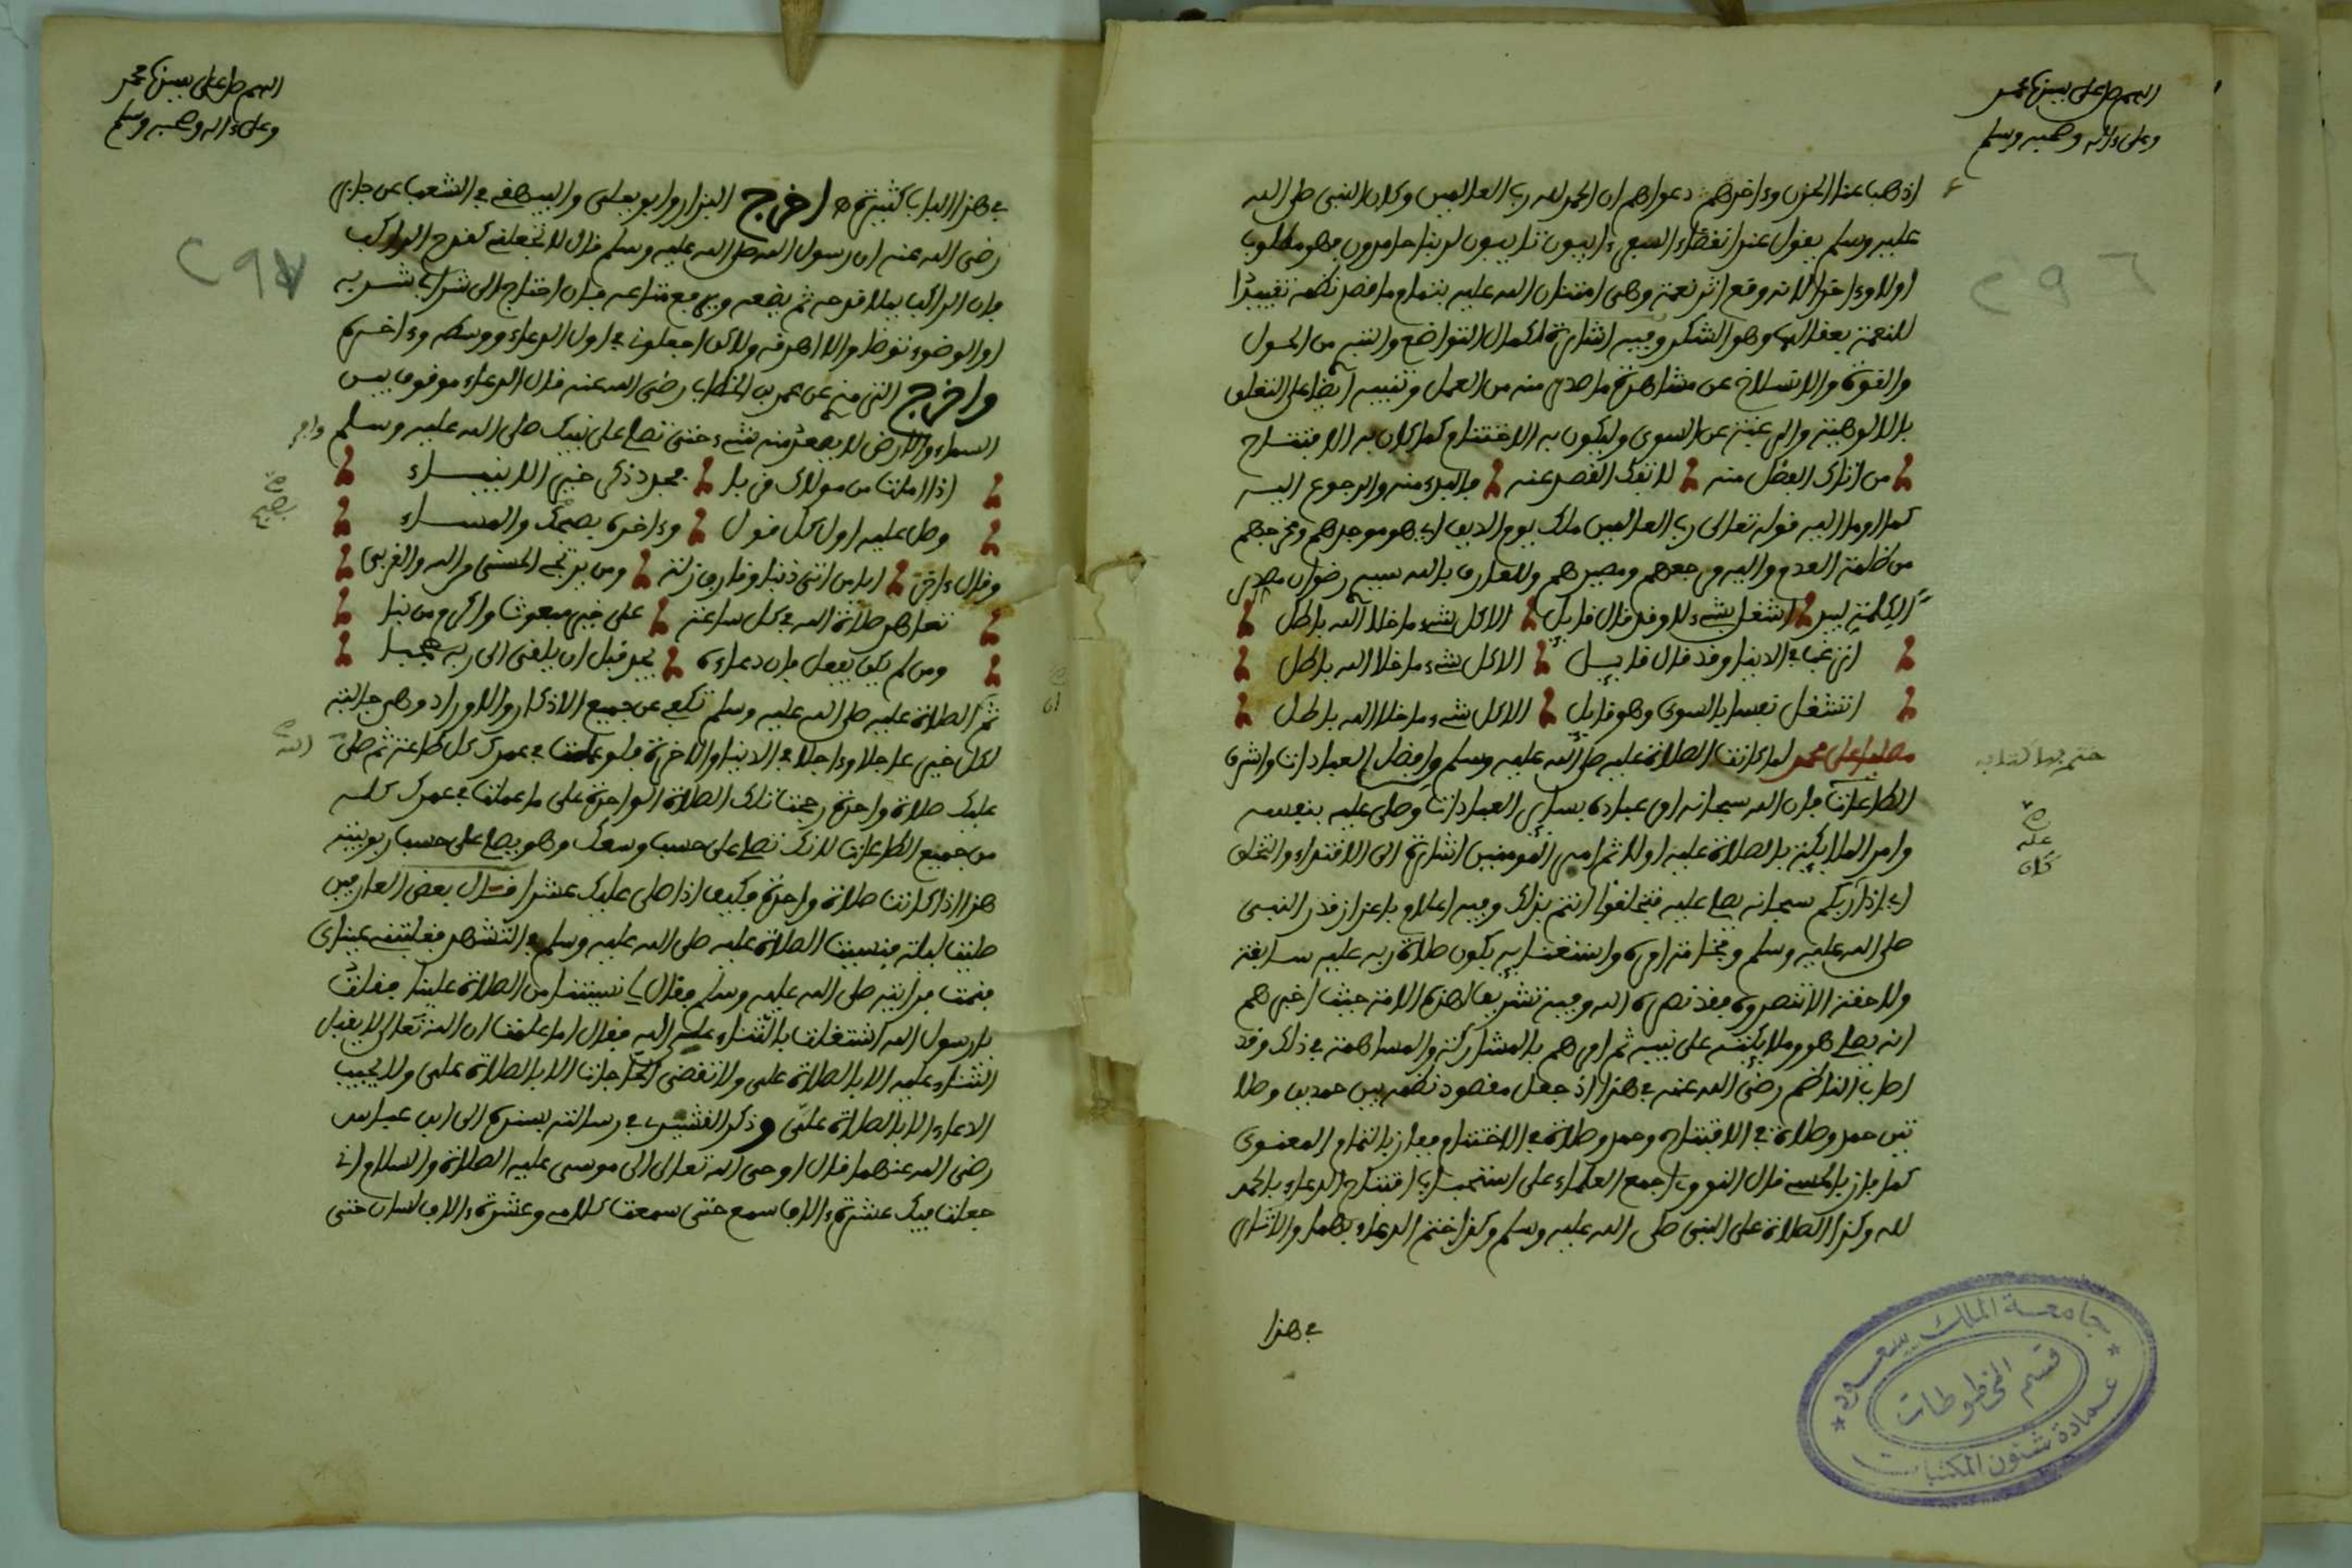 اللهم صل على سيدنا محمد
وعلى ءاله وصحبه وسلم
٢٩٦
اذهب عنا الحزن وءاخرهم دعواهم ان الحمد لله رب العالمين وكان النبي صلى الله
عليه وسلم يقول عند انقضاء السعي ءايبون تايبون لربنا حامدون فهو مطلوب
اولا وءاخرا لانه وقع اثر نعمة وهي امتنان الله عليه بتمام ما قصد نظمه تقييدا
للنعمة بعقالها وهو الشكر وفيه اشارة لكمال التواضع والتبر من الحول
والقوة والانسلاخ عن مشاهدة ما صدر منه من العمل وتنبيه ايضا على التعلق
بالالوهية والرغبة عن السوى وليكون به الاختتام كما كان به الافتتاح
من انزلك الفضل منه لا تفك القصد عنه فالبدء منه والرجوع اليه
كما اومأ اليه قوله تعالى رب العالمين ملك يوم الدين اي هو موجدهم ومخرجهم
من ظلمة العدم واليه مرجعهم ومصيرهم وللعارف بالله سيدي رضوان
الا كل شيء ما خلا الله باطل
اترغب في الدنيا وقد قال قايل الا كل شيء ما خلا الله باطل
اتشغل نفسا بالسوى وهو قايل الا كل شيء ما خلا الله باطل
مصليا على محمد لما كانت الصلاة عليه صلى الله عليه وسلم افضل العبادات واشرف
الطاعات فان الله سبحانه امر عباده بساير العبادات وصلى عليه بنفسه
وامر الملايكة بالصلاة عليه اولا ثم امر المومنين اشارة الى الاقتداء والتخلق
اي اذا ربكم سبحانه يصلي عليه فتخلقوا انتم بذلك وفيه اعلام باعزاز قدر النبي
صلى الله عليه وسلم وفخامة امره واستغنايه بكون صلاة ربه عليه سابقة
ولاحقة الا تنصروه فقد نصره الله وفيه تشريف لهذه الامة حيث اخبرهم
انه يصلي هو وملايكته على نبيه ثم امرهم بالمشاركة والمساهمة في ذلك وقد
اصاب الناظم رضي الله عنه في هذا اذ جعل مقصود نظمه بين حمدين وصلا
تين حمد وصلاة في الافتتاح وحمد وصلاة في الاختتام ففاز بالتمام المعنوي
كما فاز بالحسي قال النووي اجمع العلماء على استحباب افتتاح الدعاء بالحمد
لله وكذا الصلاة على النبي صلى الله عليه وسلم وكذا ختم الدعاء بهما والاثار
في هذا
ختم بها كتابه
جامعة الملك سعود
قسم المخطوطات
عمادة شئون المكتبات
اللهم صل على سيدنا محمد
وعلى ءاله وصحبه وسلم
٢٩٧
في هذا الباب كثيرة اخرج البزار وابو يعلى والبيهقي في الشعب عن جابر
رضي الله عنه ان رسول الله صلى الله عليه وسلم قال لا تجعلني كقدح الراكب
فان الراكب يملا قدحه ثم يضعه ويرفع متاعه فان احتاج الى شراب شربه
او الوضوء توضا والا اهرقه ولاكن اجعلوني في اول الدعاء ووسطه وءاخره
واخرج الترمذي عن عمر بن الخطاب رضي الله عنه قال الدعاء موقوف بين
السماء والارض لا يصعد منه شيء حتى تصلي على نبيك صلى الله عليه وسلم
اذا املت من مولاك قربا فجدد ذكر خير الانبياء
وصل عليه اول كل قول وءاخره بصبحك والمساء
وقال ءاخر ايا من اتى ذنبا وقارف زلة ومن يرتجي الحسنى من الله والقربى
تعاهد صلاة الله في كل ساعة على خير مبعوث واكرم من نبا
ومن لم يكن يفعل فان دعاءه يجد قبل ان يلقى الى ربه حجبا
ثم الصلاة عليه صلى الله عليه وسلم تكفي عن جميع الاذكار والاوراد وهي جالبة
لكل خير عاجلا وءاجلا في الدنيا والاخرة فلو عملت في عمرك كل طاعة ثم صلى الله
عليك صلاة واحدة رجحت تلك الصلاة الواحدة على ما عملت في عمرك كله
من جميع الطاعات لانك تصلي على حسب وسعك وهو يصلي على حسب ربوبيته
هذا اذا كانت صلاة واحدة فكيف اذا صلى عليك عشرا قال بعض العارفين
صليت ليلة فنسيت الصلاة عليه صلى الله عليه وسلم في التشهد فغلبتني عيناي
فنمت فرايته صلى الله عليه وسلم فقال لي نسيتنا من الصلاة علينا فقلت
يا رسول الله اشتغلت بالثناء على الله فقال اما علمت ان الله تعالى لا يقبل
الثناء عليه الا بالصلاة علي ولا تقضى الحاجات الا بالصلاة علي ولا يجيب
الدعاء الا بالصلاة علي وذكر القشيري في رسالته بسنده الى ابن عباس
رضي الله عنهما قال اوحى الله تعالى الى موسى عليه الصلاة والسلام اني
جعلت فيك عشرة ءالاف سمع حتى سمعت كلامي وعشرة ءالاف لسان حتى